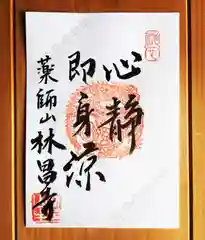 心静
即身涼
薬師山林昌寺